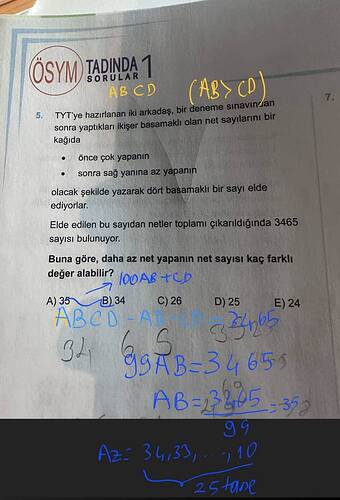 ÖSYM TADINDA 1
SORULAR
ABCD (AB > CD)
7.
5. TYT'ye hazırlanan iki arkadaş, bir deneme sınavından
sonra yaptıkları ikişer basamaklı olan net sayılarını bir
kağıda
• önce çok yapanın
• sonra sağ yanına az yapanın
olacak şekilde yazarak dört basamaklı bir sayı elde
ediyorlar.
Elde edilen bu sayıdan netler toplamı çıkarıldığında 3465
sayısı bulunuyor.
Buna göre, daha az net yapanın net sayısı kaç farklı
değer alabilir?
100AB+CD
A) 35 B) 34 C) 26 D) 25 E) 24
ABCD - AB - CD = 3465
34 6 5
99AB = 3465
AB = 3465 = 35
99
Az = 34, 33, ..., 10
25 tane